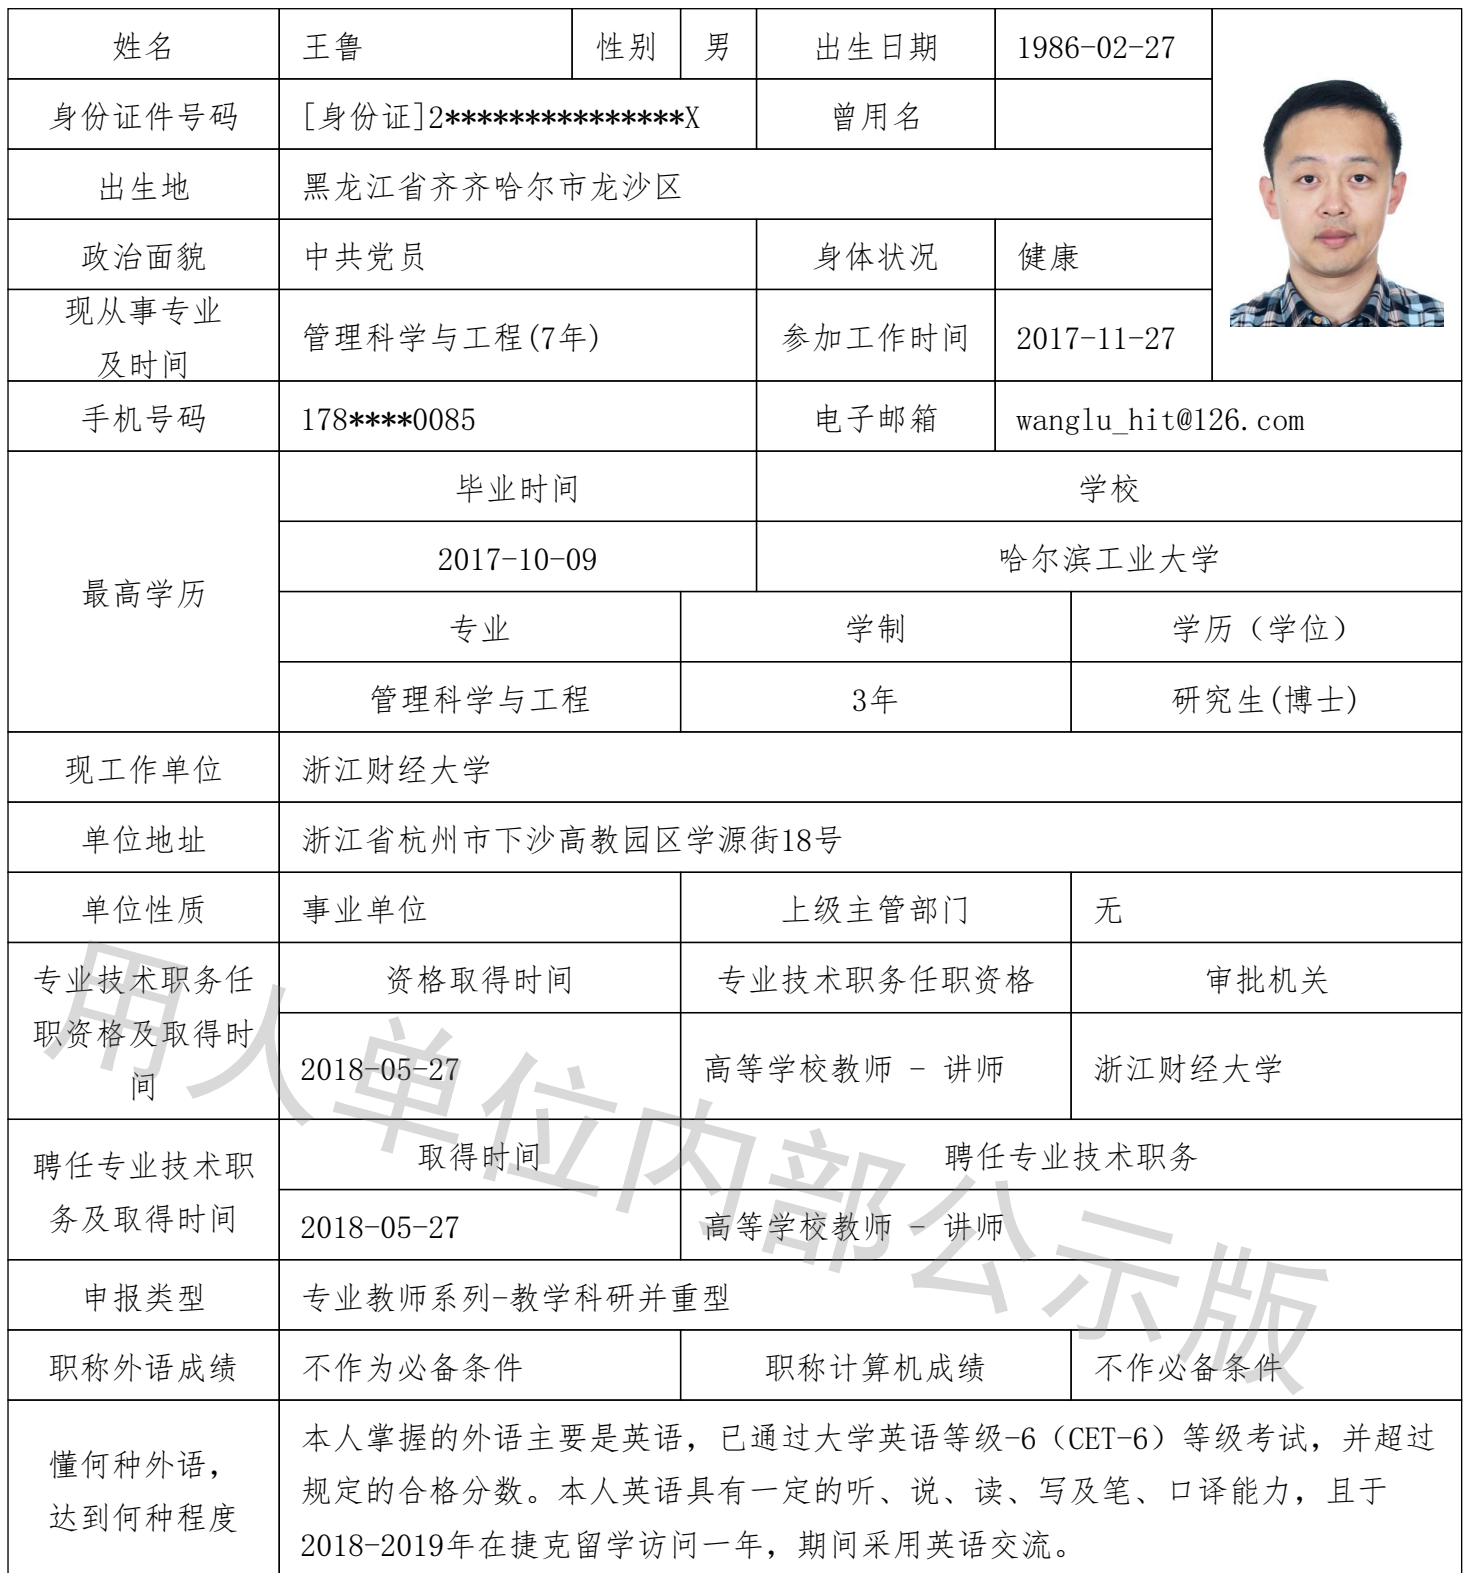 姓名 王鲁 性别 男 出生日期 1986-02-27
身份证件号码 [身份证]2***************X 曾用名
出生地 黑龙江省齐齐哈尔市龙沙区
政治面貌 中共党员 身体状况 健康
现从事专业
及时间 管理科学与工程(7年) 参加工作时间 2017-11-27
手机号码 178****0085 电子邮箱 wanglu_hit@126.com
最高学历
毕业时间 学校
2017-10-09 哈尔滨工业大学
专业 学制 学历（学位）
管理科学与工程 3年 研究生(博士)
现工作单位 浙江财经大学
单位地址 浙江省杭州市下沙高教园区学源街18号
单位性质 事业单位 上级主管部门 无
专业技术职务任
职资格及取得时
间
资格取得时间 专业技术职务任职资格 审批机关
2018-05-27 高等学校教师 - 讲师 浙江财经大学
聘任专业技术职
务及取得时间
取得时间 聘任专业技术职务
2018-05-27 高等学校教师 - 讲师
申报类型 专业教师系列-教学科研并重型
职称外语成绩 不作为必备条件 职称计算机成绩 不作必备条件
懂何种外语，
达到何种程度
本人掌握的外语主要是英语，已通过大学英语等级-6（CET-6）等级考试，并超过
规定的合格分数。本人英语具有一定的听、说、读、写及笔、口译能力，且于
2018-2019年在捷克留学访问一年，期间采用英语交流。
用人单位内部公示版